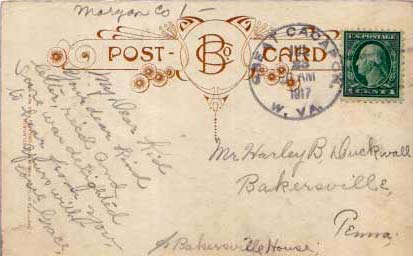 Morgan Co 1-
POST-
Bo
CARD
GREAT CACAPON,
25
AM
1917
W. VA.
U.S. POSTAGE
1 CENT 1
My Dear Kid
Your dear kind
letter rec'd and
was delighted
to hear from you,
Mr Harley B Duckwall
Bakersville,
Penna;
c/o Bakersville House;